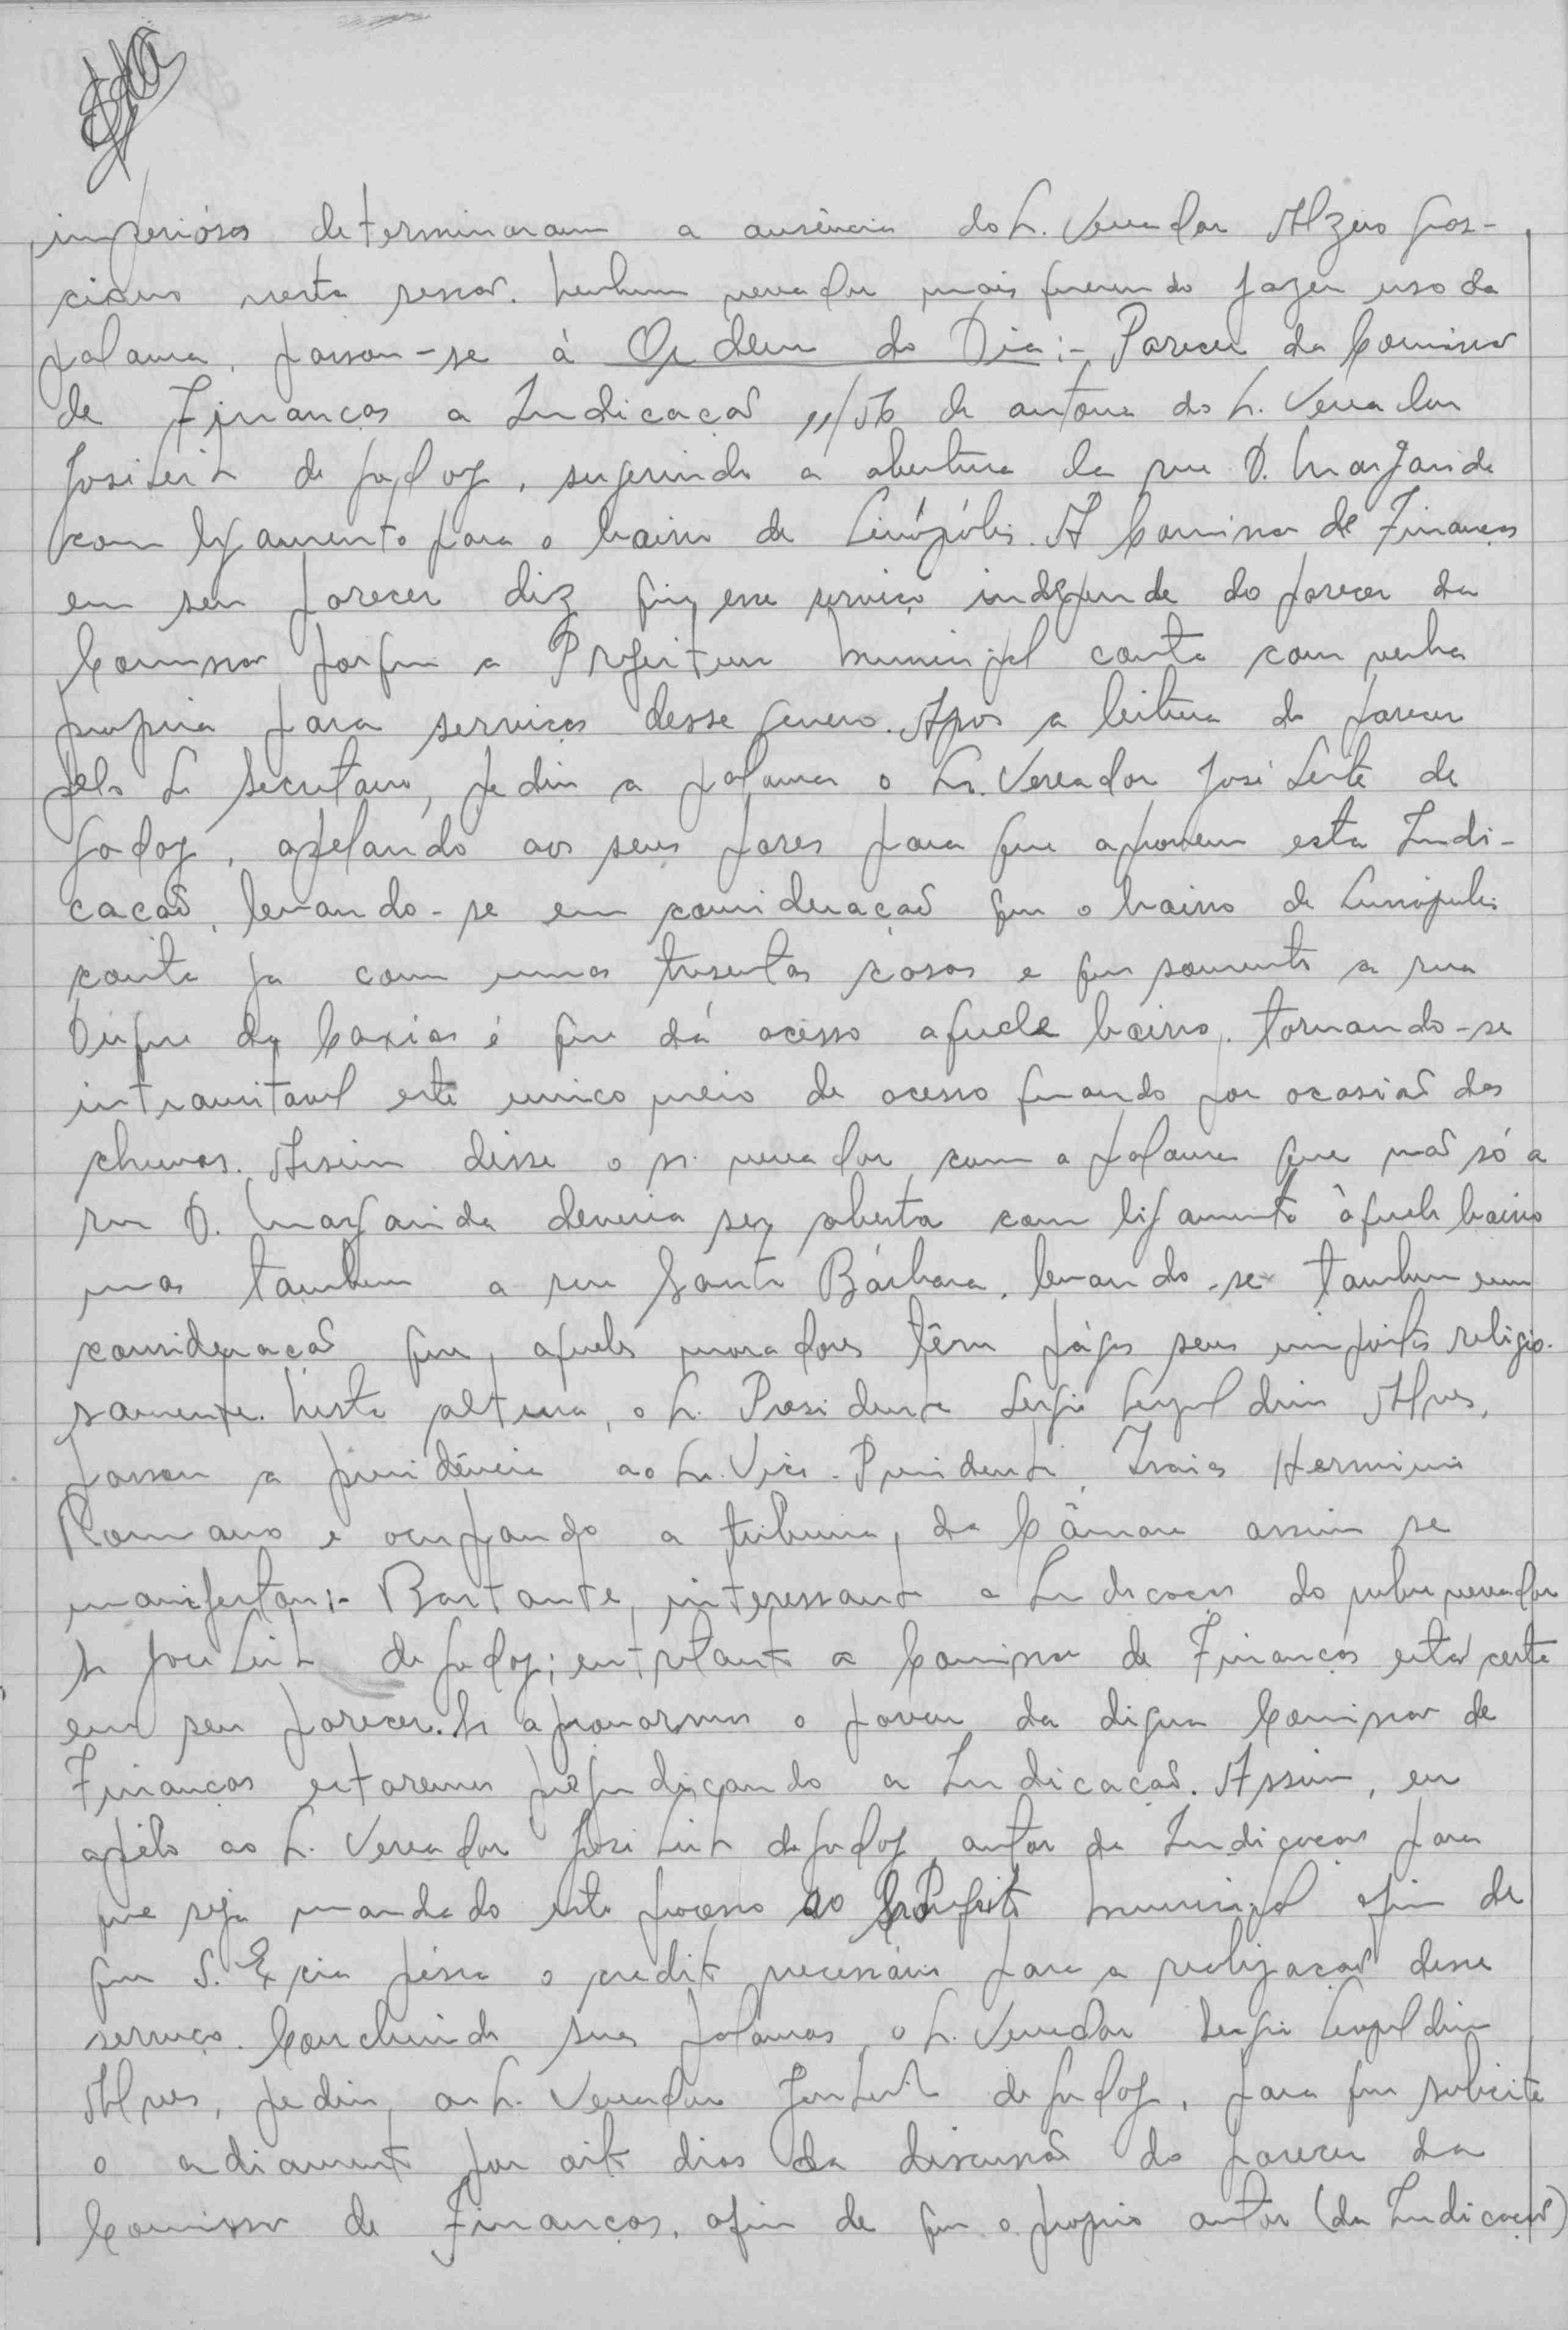 imperiósos determinaram a ausência do Sr. Vereador Alzero
nesta sessão. Nenhum vereador mais querendo fazer uso da
palavra, passou-se à Ordem do Dia:- Parecer da Comissão
de Finanças a Indicação 11/56 de autoria do Sr. Vereador
José Leite de Godoy, sugerindo a abertura da rua D. Margarida
com ligamento para o bairro de Linópolis. A Comissão de Finanças
em seu parecer diz que esse serviço independe do parecer da
Comissão porque a Prefeitura Municipal conta com verba
propria para serviços desse genero. Apos a leitura do parecer
pelo Sr Secretario, pediu a palavra o Sr. Vereador José Leite de
Godoy, apelando aos seus pares para que aprovem esta Indi-
cacaõ, levando-se em consideraçaõ que o bairro de Linopolis
conta ja com umas tresentas casas e que somente a rua
Duque de Caxias é que dá acesso aquele bairro, tornando-se
intransitavel este unico meio de acesso quando por ocasiaõ das
chuvas. Assim disse o sr. vereador com a palavra que naõ só a
rua D. Margarida deveria ser aberta com ligamento àquele bairro
mas tambem a rua Santa Bárbara, levando-se tambem em
consideracaõ que, aqueles moradores têm págo seus impostos religio-
samente. Nesta altura, o Sr. Presidente Sergio Leopoldino Alves,
passou a presidência ao Sr. Vice-Presidente, Isaias Herminio
Romano e ocupando a tribuna, da Câmara assim se
manifestou:- Bastante, interessante a Indicacao do nobre vereador
Sr José Leite de Godoy; entretanto a Comissao de Finanças está certa
em seu parecer. Se aprovarmos o parecer da digna Comissao de
Finanças estaremos prejudicando a Indicacaõ. Assim, eu
apélo ao Sr. Vereador José Leite de Godoy, autor da Indicacao para
que seja mandado este processo ao Sr Prefeito Municipal afim de
que S. Excia péssa o credito necessario para a realizacaõ desse
serviço. Concluindo suas palavras, o Sr. Vereador Sergio Leopoldino
Alves, pediu, ao Sr. Vereador José Leite de Godoy, para que solicite
o adiamento por oito dias da discussaõ do parecer da
Comissao de Finanças, afim de que o proprio autor (da Indicacaõ)